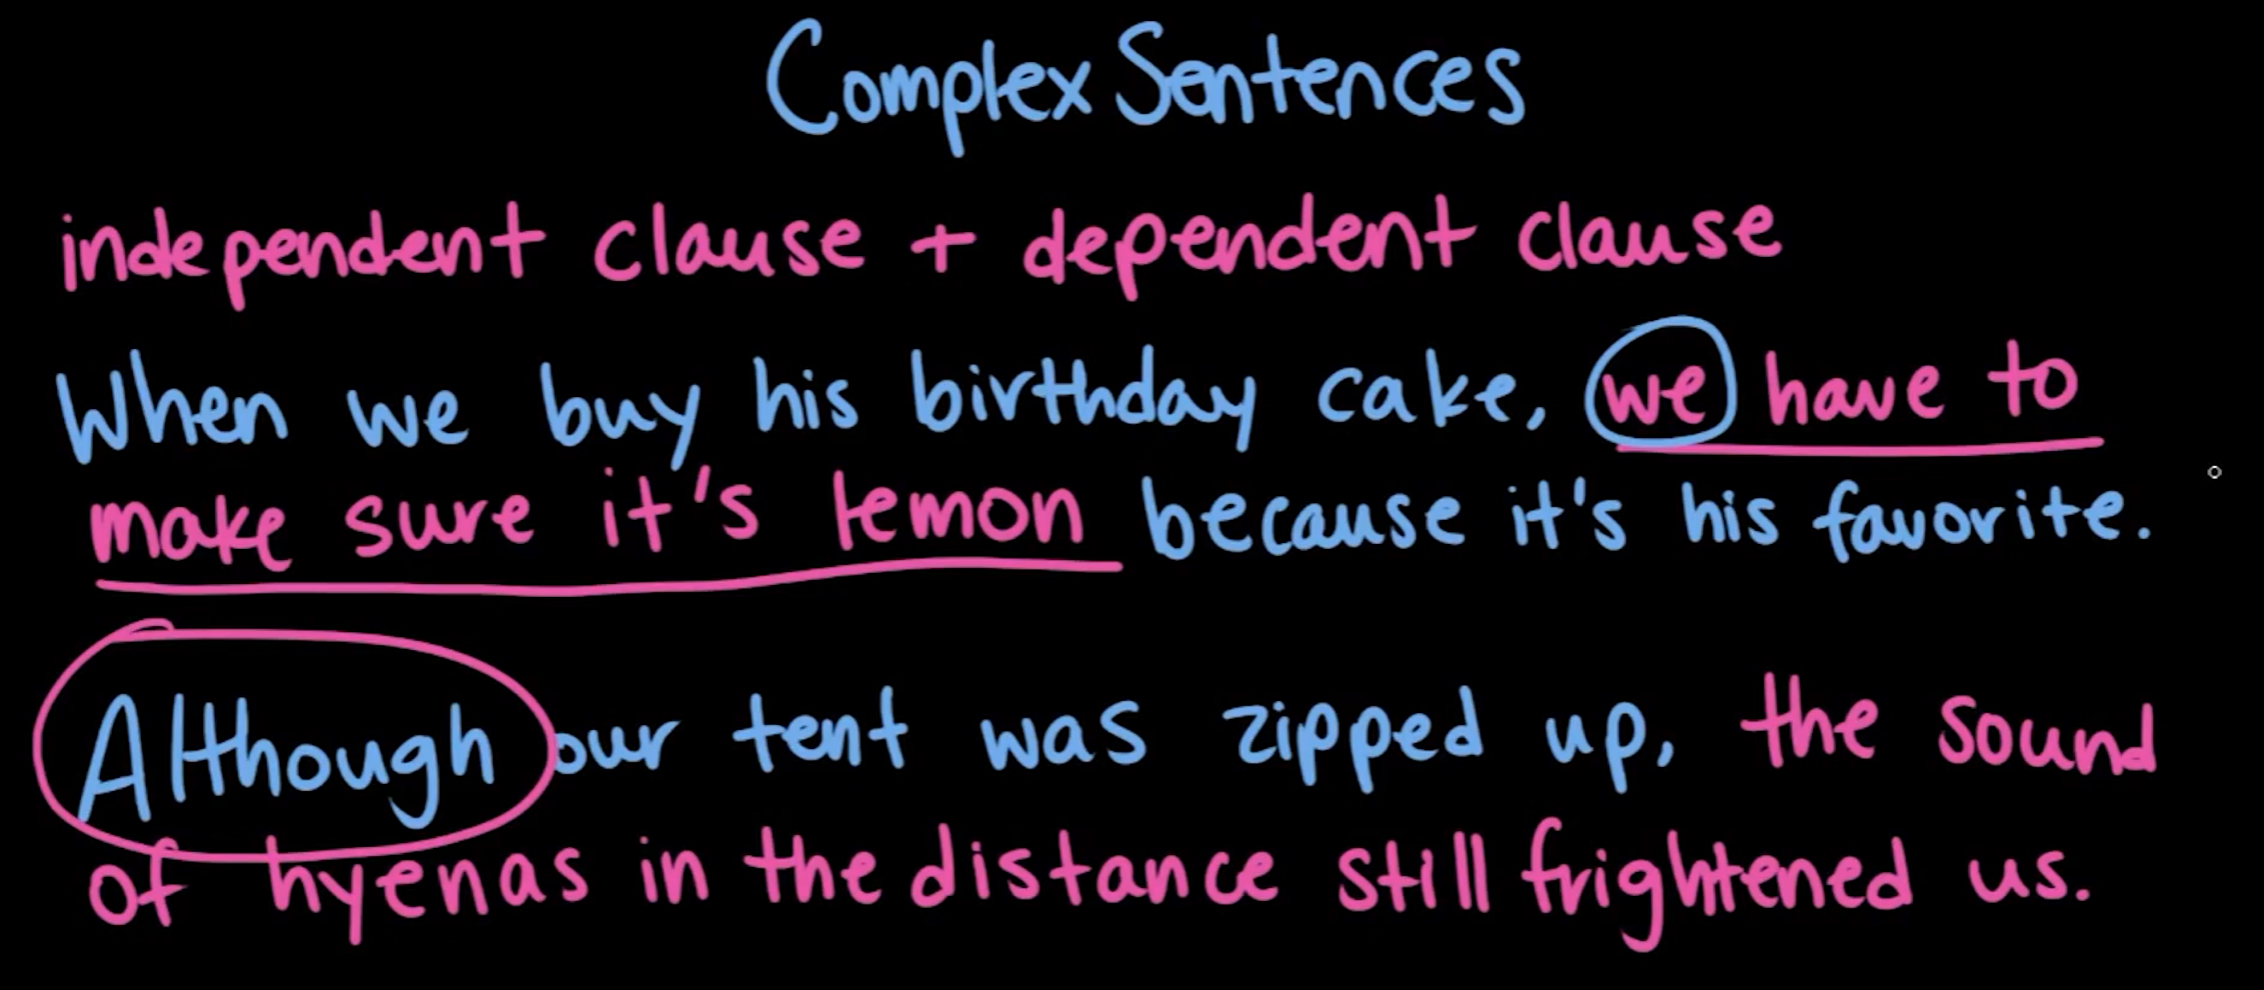 Complex Sentences
independent clause + dependent clause
When we buy his birthday cake, we have to
make sure it's lemon because it's his favorite.
Although our tent was zipped up, the sound
of hyenas in the distance still frightened us.